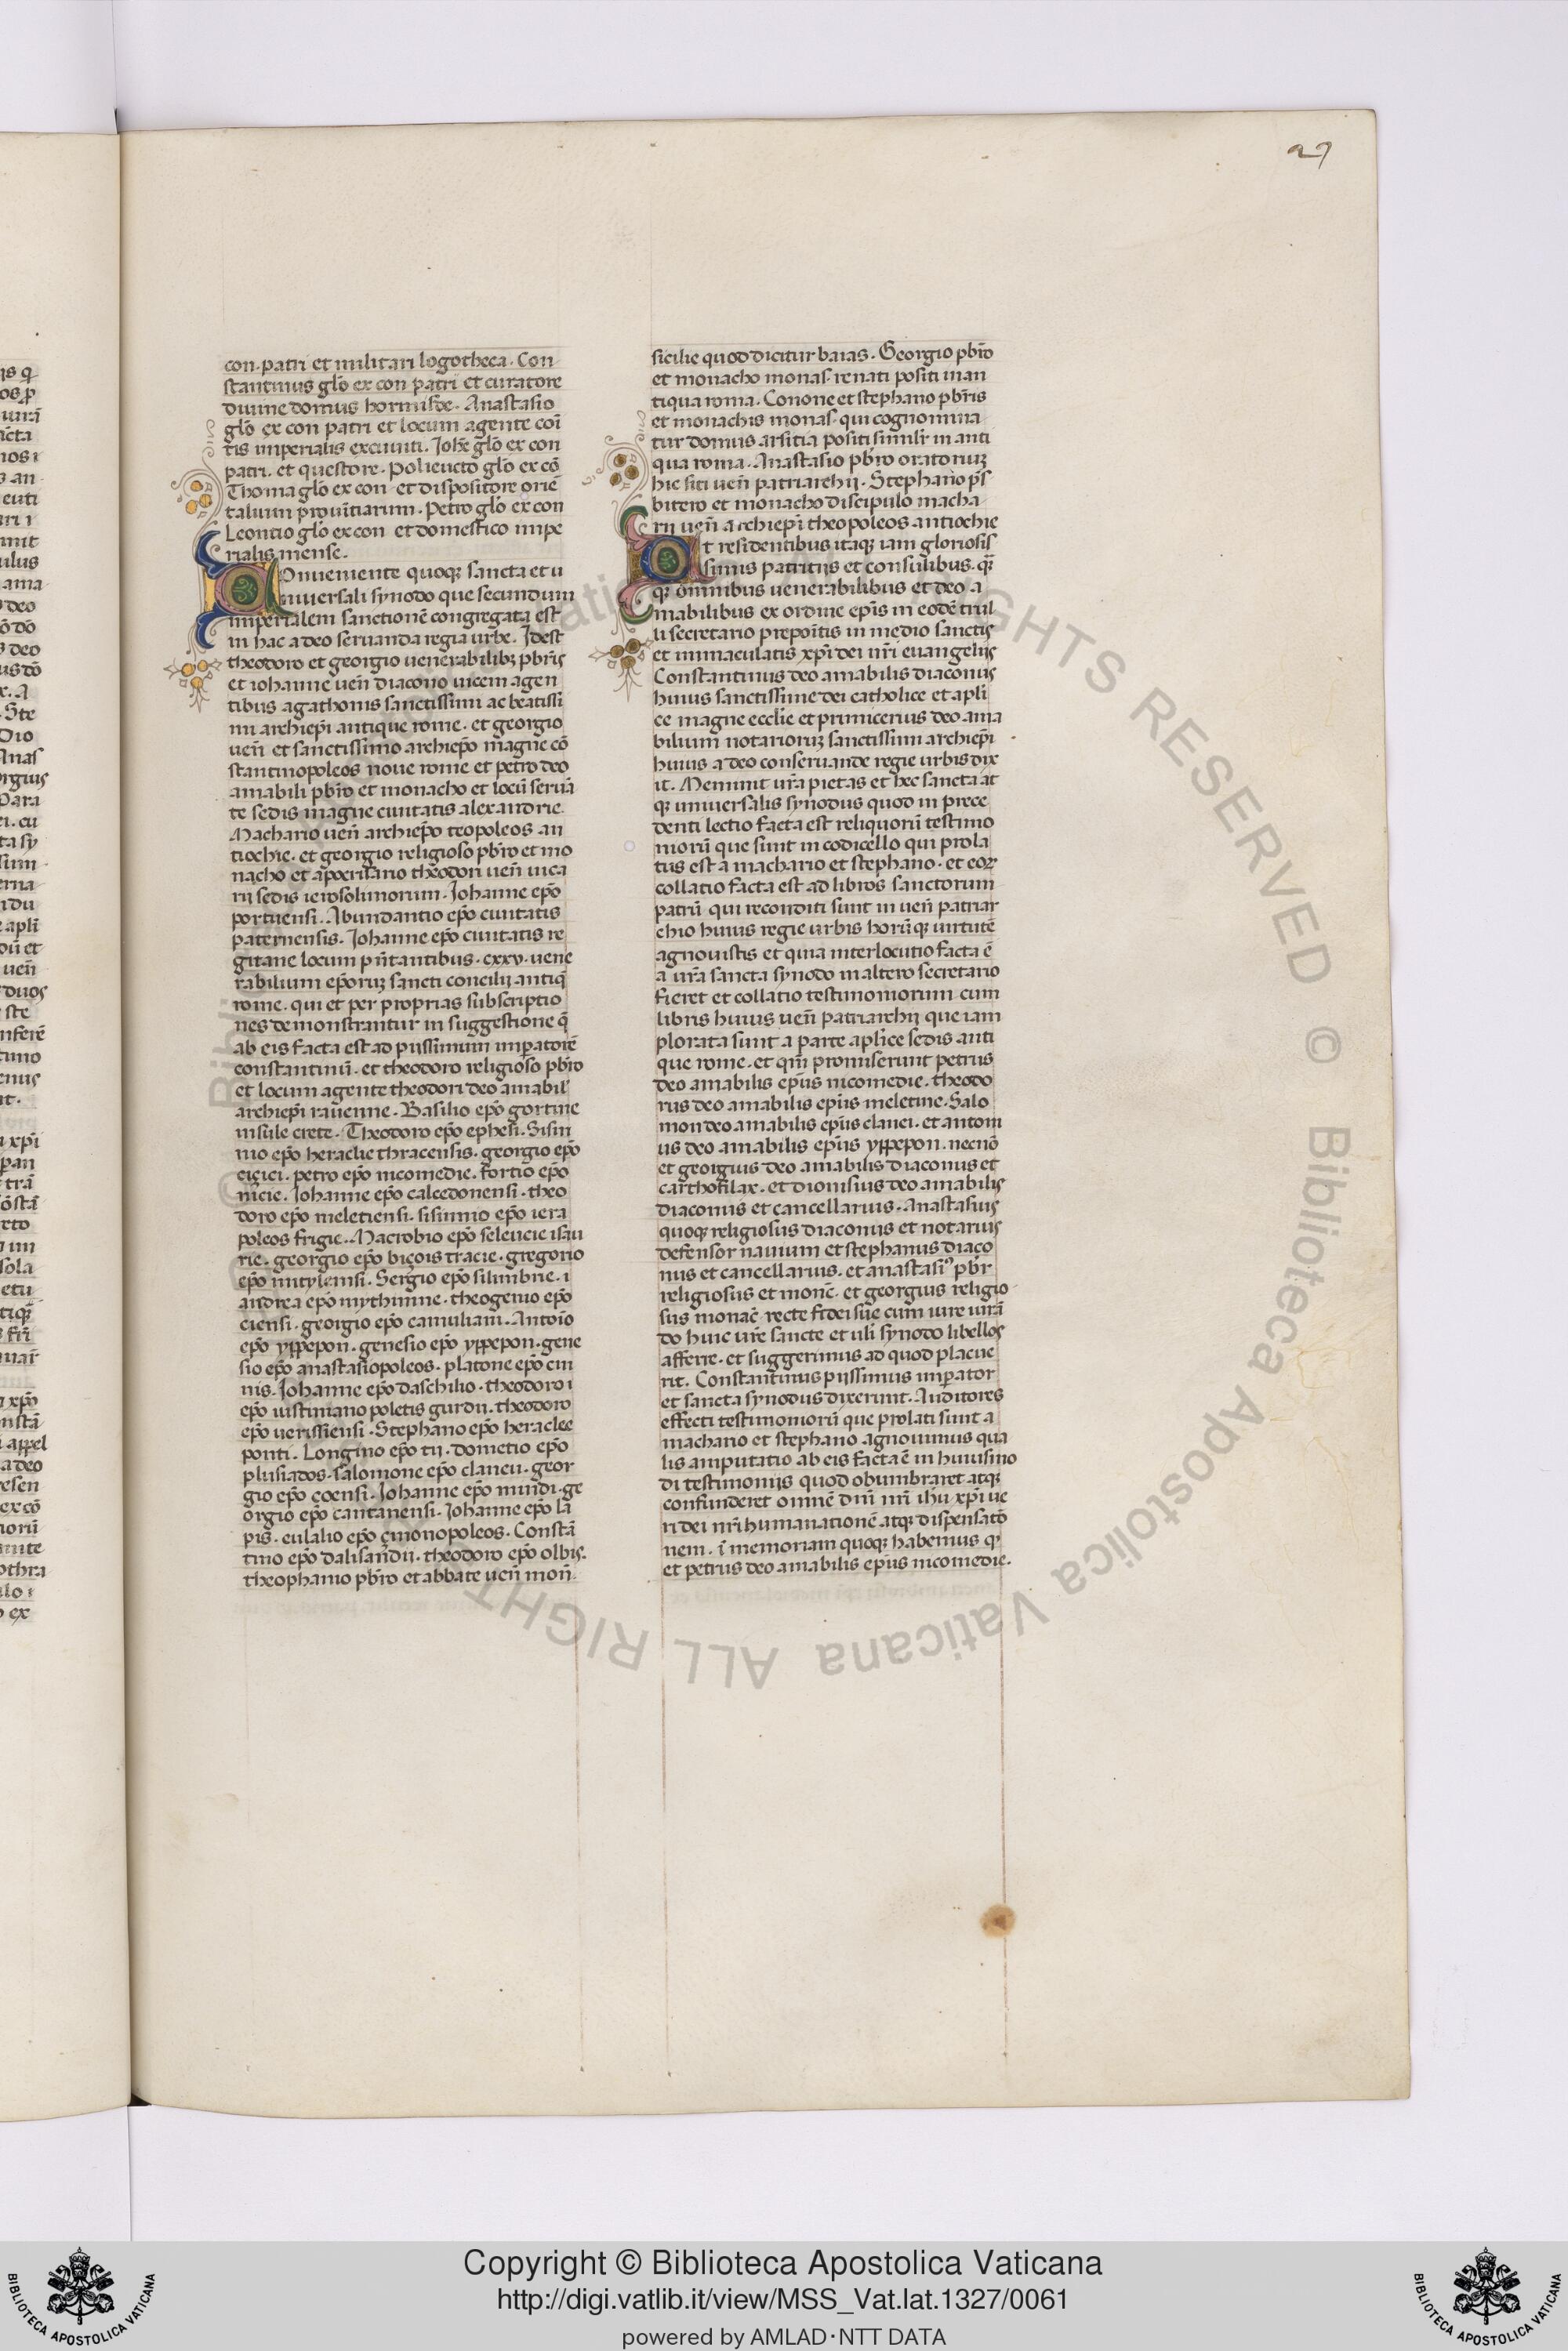 27
con patri et militari logotheca. Con
stantinus glo᷑ ex con patri et curatore
diuine domus hormisde. Anastasio
glo᷑ ex con patri et locum agente comi
tis imperialis excuuiti. Joh̄e glo᷑ ex con
patri. et questore. Policucto glo᷑ ex cō
Thoma glo᷑ ex con et dispositore oriē
talium prouintiarum. Petro glo᷑ ex con
Leontio glo᷑ ex con et domestico impe
rialis mense.
Conueniente quoqꝫ sancta et u
niuersali synodo que secundum
imperialem sanctionē congregata est
in hac a deo seruanda regia urbe. Idest
theodoro et georgio uenerabilibꝫ pb̄ris
et iohanne uen̄ diacono uicem agen
tibus agathonis sanctissimi ac beatissi
mi archiep̄i antique rome. et georgio
uen̄ et sanctissimo archiep̄o magne cō
stantinopoleos noue rome et petro deo
amabili pb̄ro et monacho et locū seruā
te sedis magne ciuitatis alexandrie.
Machario uen̄ archiep̄o teopoleos an
tiochie. et georgio religioso pb̄ro et mo
nacho et apocrisario theodori uen̄ uica
rij sedis ierosolimorum. Johanne ep̄o
portuensi. Abundantio ep̄o ciuitatis
paternensis. Johanne ep̄o ciuitatis re
gitane locum pn̄tantibus. cxxv. uene
rabilium ep̄oruꝫ sancti concilij antiq̄
rome. qui et per proprias subscriptio
nes demonstrantur in suggestione q̄
ab eis facta est ad piissimum imꝑatorē
constantinū. et theodoro religioso pb̄ro
et locum agente theodori deo amabil'
archiep̄i rauenne. Basilio ep̄o gortine
insule crete. Theodoro ep̄o ephesi. Sisin
nio ep̄o heraclie thracensis. georgio ep̄o
ciçici. petro ep̄o nicomedie. fortiō ep̄o
nicie. Johanne ep̄o calcedonensi. theo
doro ep̄o meletiensi. sisinnio ep̄o iera
poleos frigie. Macrobio ep̄o seleucie isau
rie. georgio ep̄o biçois tracie. gregorio
ep̄o mitylensi. Sergio ep̄o silimbrie. i
andrea ep̄o mythimne. theogenio ep̄o
ciensi. georgio ep̄o camuliam. Antoīo
ep̄o yppepon. genesio ep̄o yppepon. gene
sio ep̄o anastasiopoleos. platone ep̄o cin
nis. Johanne ep̄o daschilio. theodoro i
ep̄o iustiniano poletis gurdij. theodoro
ep̄o uerissiensi. Stephano ep̄o heraclee
ponti. Longino ep̄o tij. dometio ep̄o
plusiados. salomone ep̄o claneu. geor
gio ep̄o çoensi. Johanne ep̄o mindi. ge
orgio ep̄o cantanensi. Johanne ep̄o la
pis. eulalio ep̄o çinonopoleos. Constā
tino ep̄o dalisandij. theodoro ep̄o olbis.
theophanio pb̄ro et abbate uen̄ mon̄.
sicilie quod dicitur baias. Georgio pb̄ro
et monacho monas. renati positi in an
tiqua roma. Conone et stephano pb̄ris
et monachis monas. qui cognomina
tur domus arsitia positi simil̄r in anti
qua roma. Anastasio pb̄ro oratoriuꝫ
hic siti uen̄ patriarchij. Stephano ps̄
bitero et monacho discipulo macha
rij uen̄ archiep̄i theopoleos antiochie
Et residentibus itaqꝫ iam gloriosis
simis patritijs et consulibus. q̄
qꝫ omnibus uenerabilibus et deo a
mabilibus ex ordine ep̄is in eodē trul
li secretario prepoītis in medio sanctis
et immaculatis xp̄i dei nr̄i euangelijs
Constantinus deo amabilis diaconus
huius sanctissime dei catholice et apl̄i
ce magne eccl̄ie et primicerius deo ama
bilium notarioruꝫ sanctissimi archiep̄i
huius a deo conseruande regie urbis dix
it. Meminit ur̄a pietas et hec sancta at
qꝫ uniuersalis synodus quod in prece
denti lectio facta est reliquorū testimo
niorū que sunt in codicello qui prola
tus est a machario et stephano. et eoꝝ
collatio facta est ad libros sanctorum
patrū qui reconditi sunt in uen̄ patriar
chio huius regie urbis horūqꝫ uirtutē
agnouistis et quia interlocutio facta ē
a ur̄a sancta synodo in altero secretario
fieret et collatio testimoniorum cum
libris huius uen̄ patriarchij que iam
plorata sunt a parte apl̄ice sedis anti
que rome. et qm̄ promiserunt petrus
deo amabilis ep̄us nicomedie. theodo
rus deo amabilis ep̄us meletine. Salo
mon deo amabilis ep̄us clanei. et antoni
us deo amabilis ep̄us yppepon. necnō
et georgius deo amabilis diaconus et
carthofilax. et dionisius deo amabilis
diaconus et cancellarius. Anastasius
quoqꝫ religiosus diaconus et notarius
defensor nauium et stephanus diaco
nus et cancellarius. et anastasiꝰ pb̄r
religiosus et monc̄. et georgius religio
sus monac̄ recte fidei sue cum iure iurā
do huic ur̄e sancte et uli synodo libellos
afferre. et suggerimus ad quod placue
rit. Constantinus piissimus imperator
et sancta synodus dixerunt. Auditores
effecti testimoniorū que prolati sunt a
machario et stephano agnouimus qua
lis amputatio ab eis facta ē in huiusmo
di testimonijs quod obumbraret atqꝫ
confunderet omnē dn̄i nr̄i ih̄u xp̄i ue
ri dei nr̄i humanationē atqꝫ dispensatō
nem. ī memoriam quoqꝫ habemus qꝫ
et petrus deo amabilis ep̄us nicomedie.
© Biblioteca Apostolica Vaticana ALL RIGHTS RESERVED © Biblioteca Apostolica Vaticana ALL RIGHTS
Copyright © Biblioteca Apostolica Vaticana
http://digi.vatlib.it/view/MSS_Vat.lat.1327/0061
powered by AMLAD·NTT DATA
BIBLIOTECA APOSTOLICA VATICANA
BIBLIOTECA APOSTOLICA VATICANA